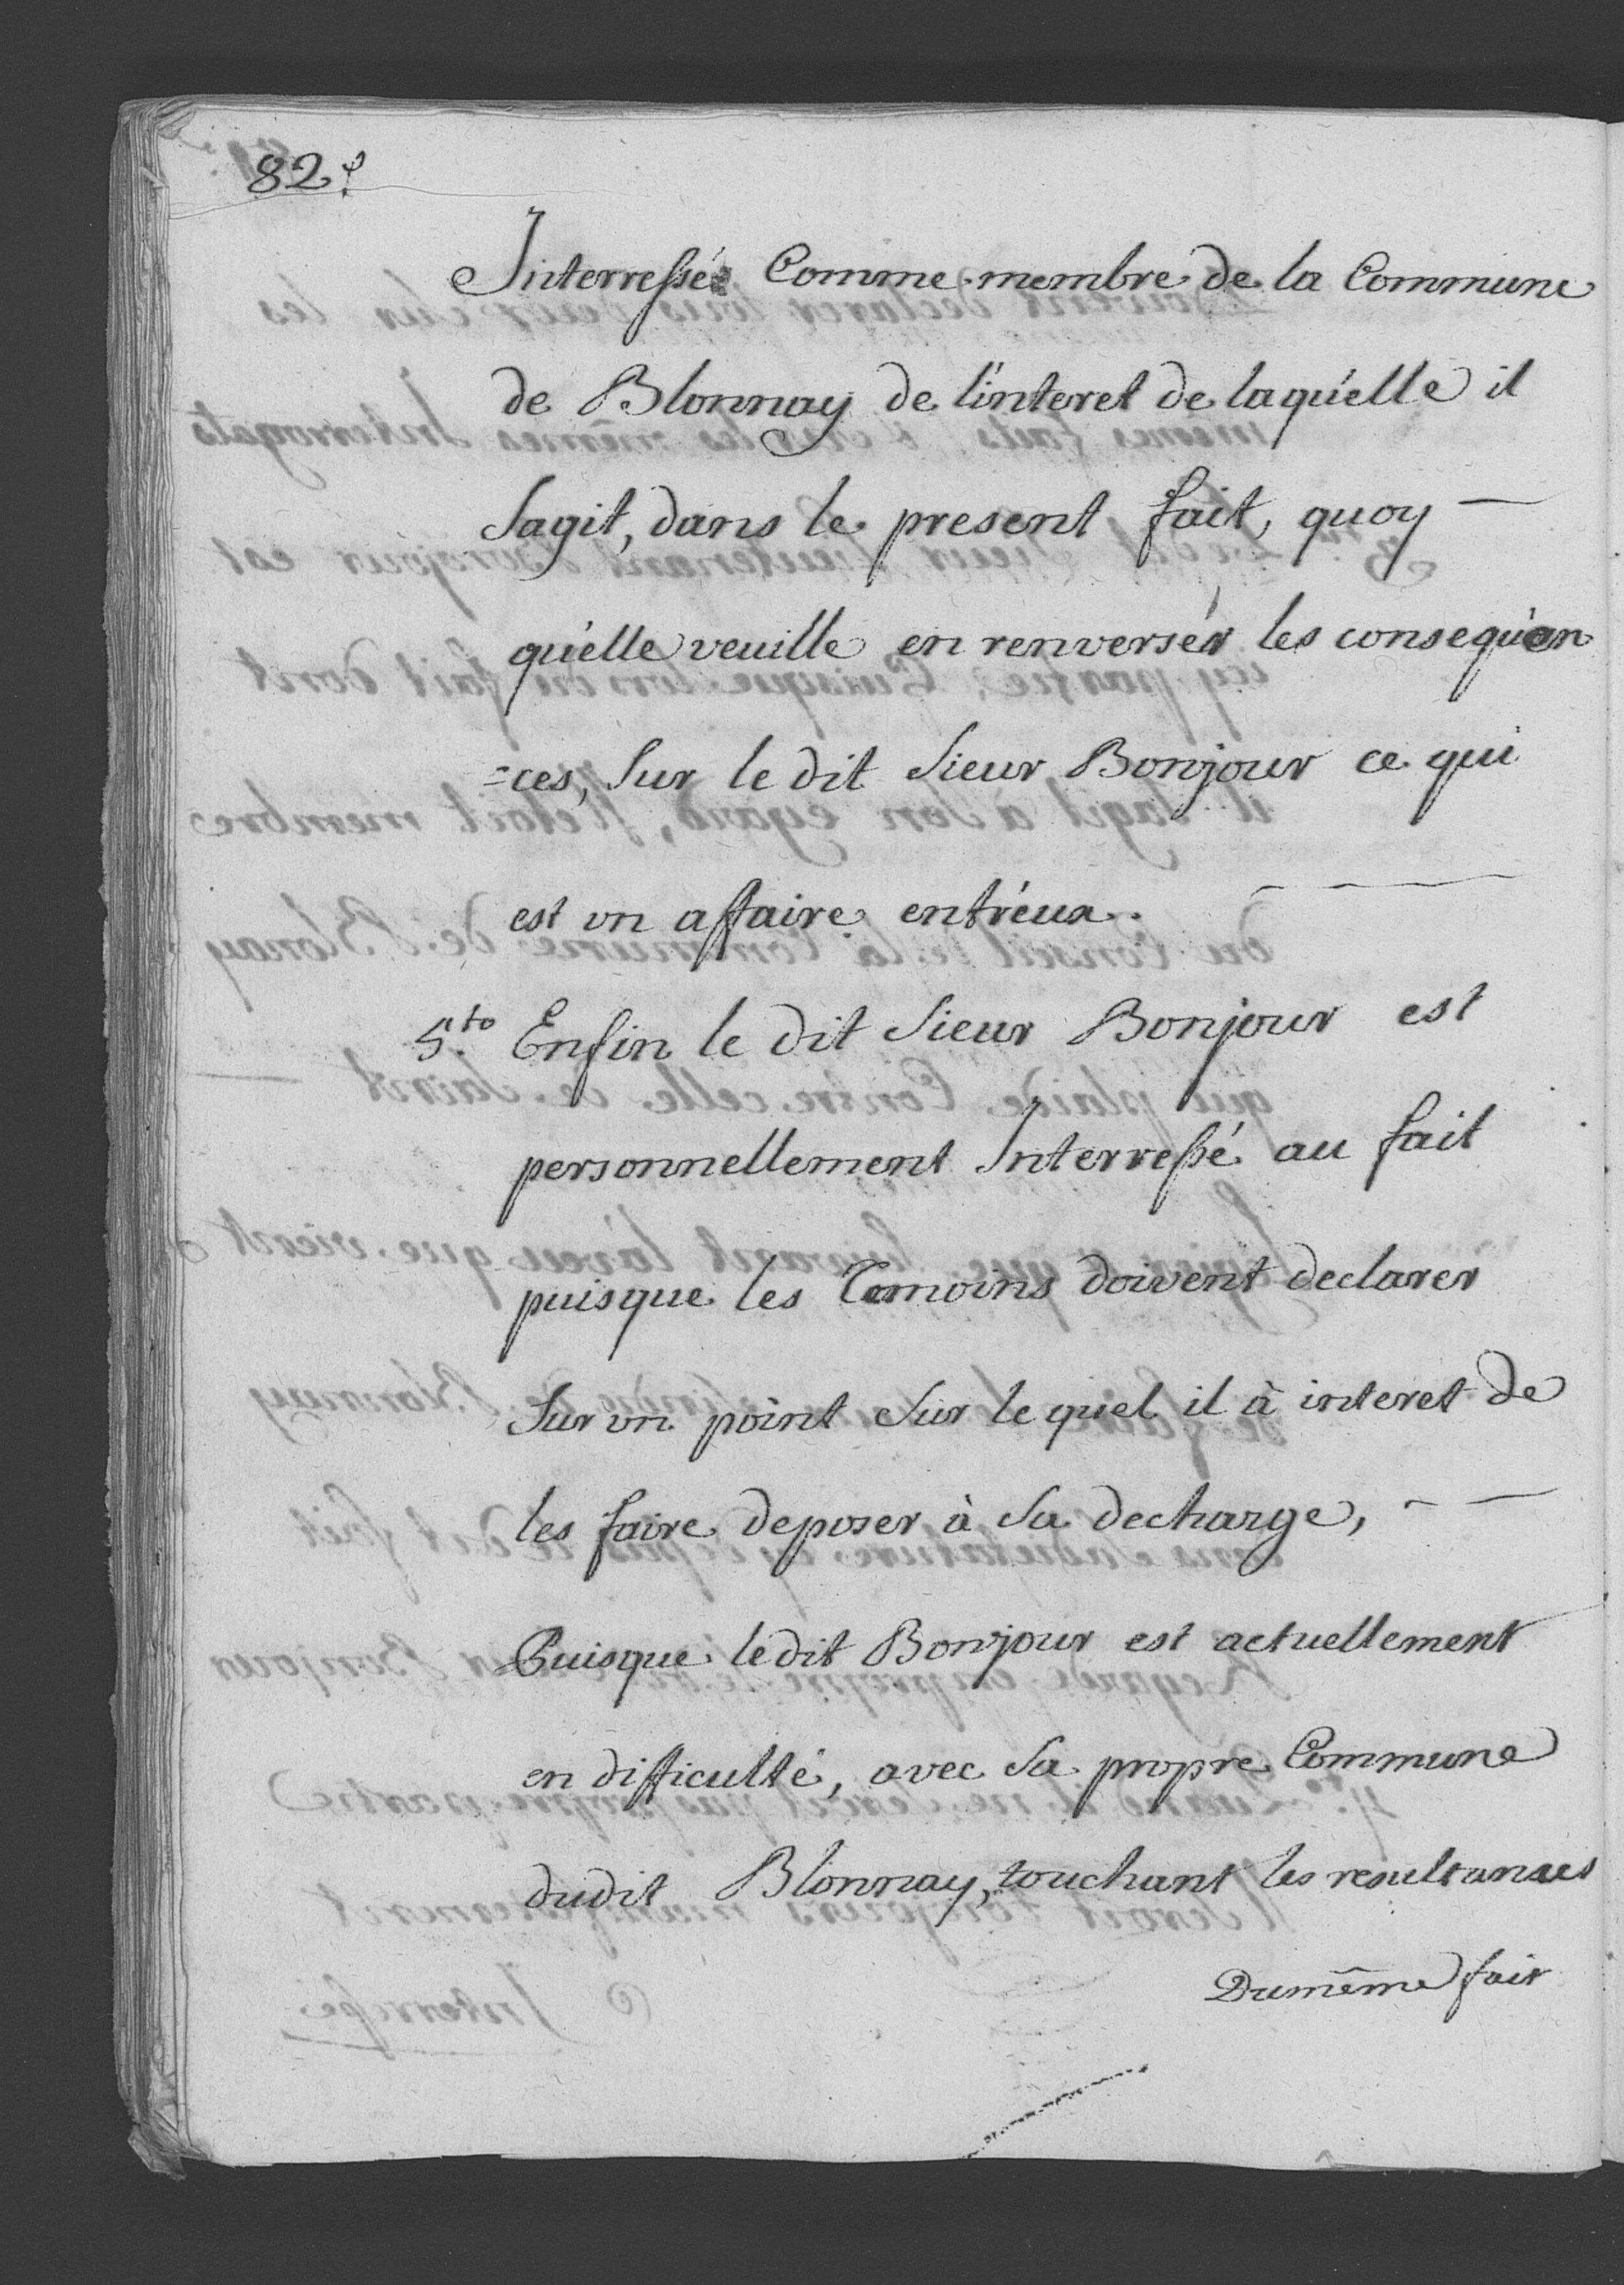 82.
Interressé Comme membre de la Commune
de Blonnay de l'interet de laquelle il
Sagit, dans le present fait, quoy —
qu'elle veuille en renverser les consequen
=ces, Sur le dit Sieur Bonjour ce qui
est un affaire entr'eux.
5.to Enfin le dit Sieur Bonjour est
personnellement Interressé au fait
puisque les Temoins doivent declarer
Sur un point Sur le quel il à interet de
les faire deposer à Sa decharge, —
Puisque ledit Bonjour est actuellement
en difficulté, avec Sa propre Commune
dudit Blonnay, touchant les resultances
Du même fait